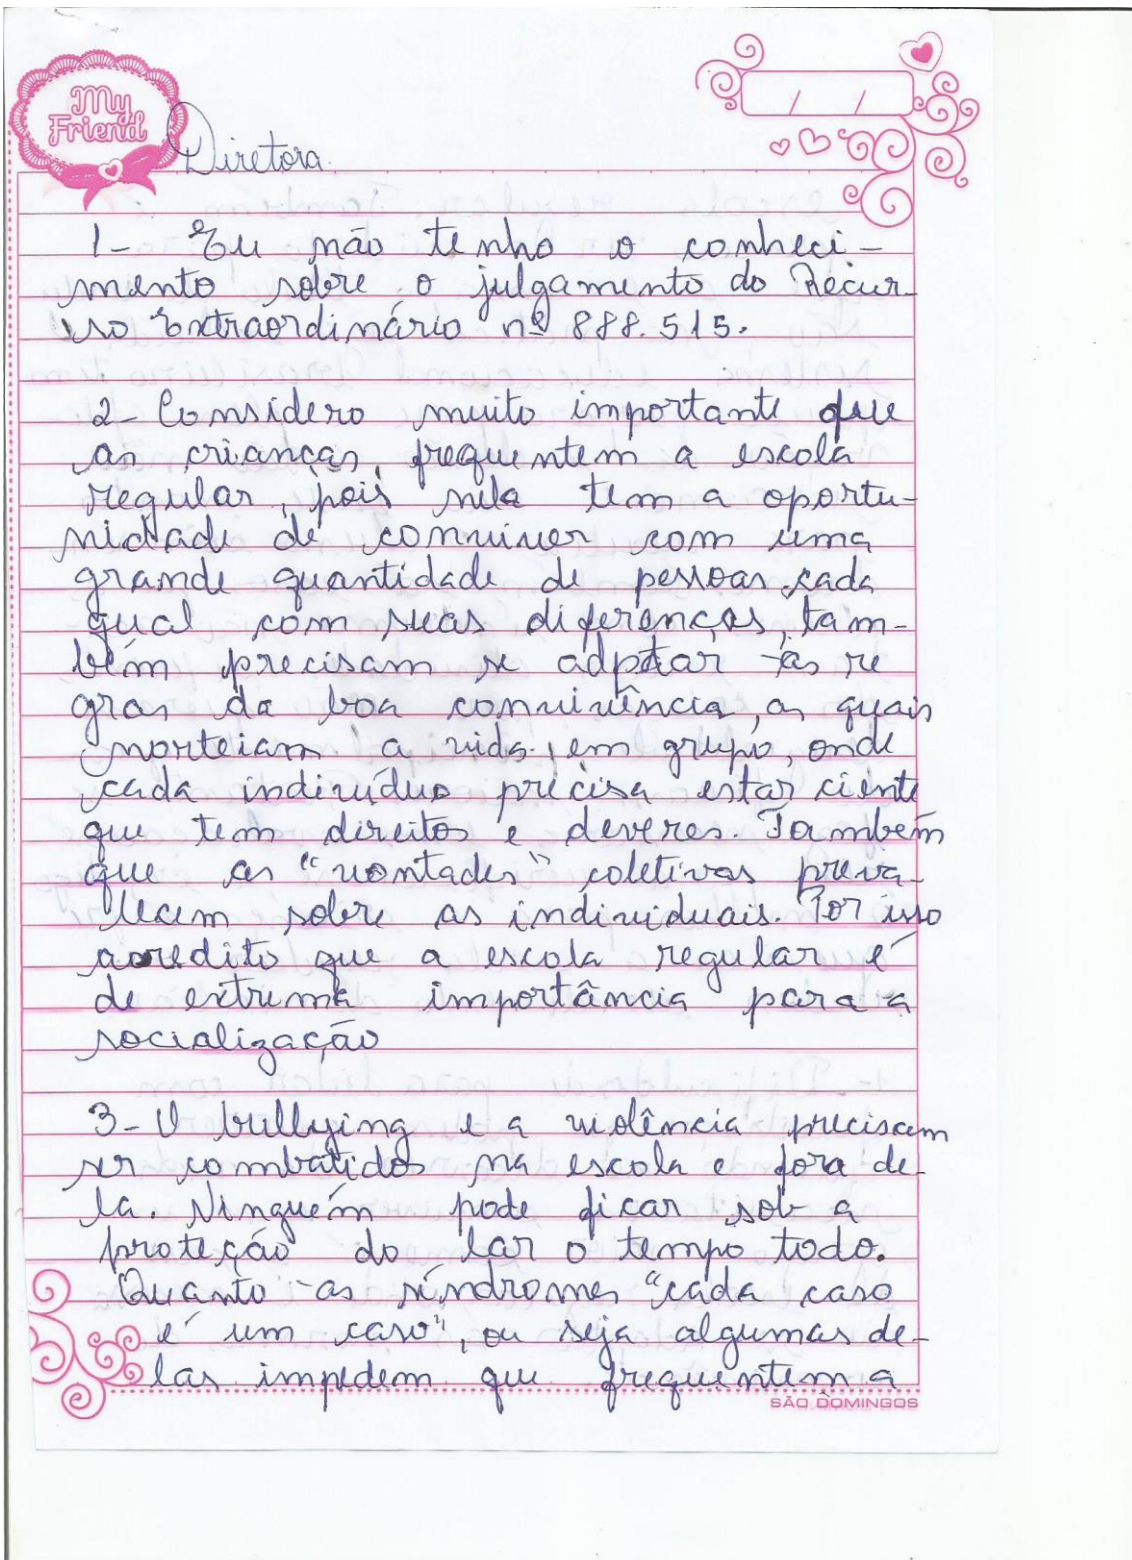 My
Friend
Diretora
1- Eu não tenho o conheci-
mento sobre o julgamento do Recur-
so Extraordinário nº 888.515.
2- Considero muito importante que
as crianças frequentem a escola
regular, pois nela tem a oportu-
nidade de conviver com uma
grande quantidade de pessoas cada
qual com suas diferenças, tam-
bém precisam se adptar às re
gras da boa convivência, as quais
norteiam a vida em grupo, onde
cada indivíduo precisa estar ciente
que tem direitos e deveres. Também
que as "vontades" coletivas preva-
lecem sobre as individuais. Por isso
acredito que a escola regular é
de extrema importância para a
socialização
3- O bullying e a violência precisam
ser combatidos na escola e fora de-
la. Ninguém pode ficar sob a
proteção do lar o tempo todo.
Quanto as síndromes "cada caso
é um caso", ou seja algumas de-
las impedem que frequentem a
SÃO DOMINGOS